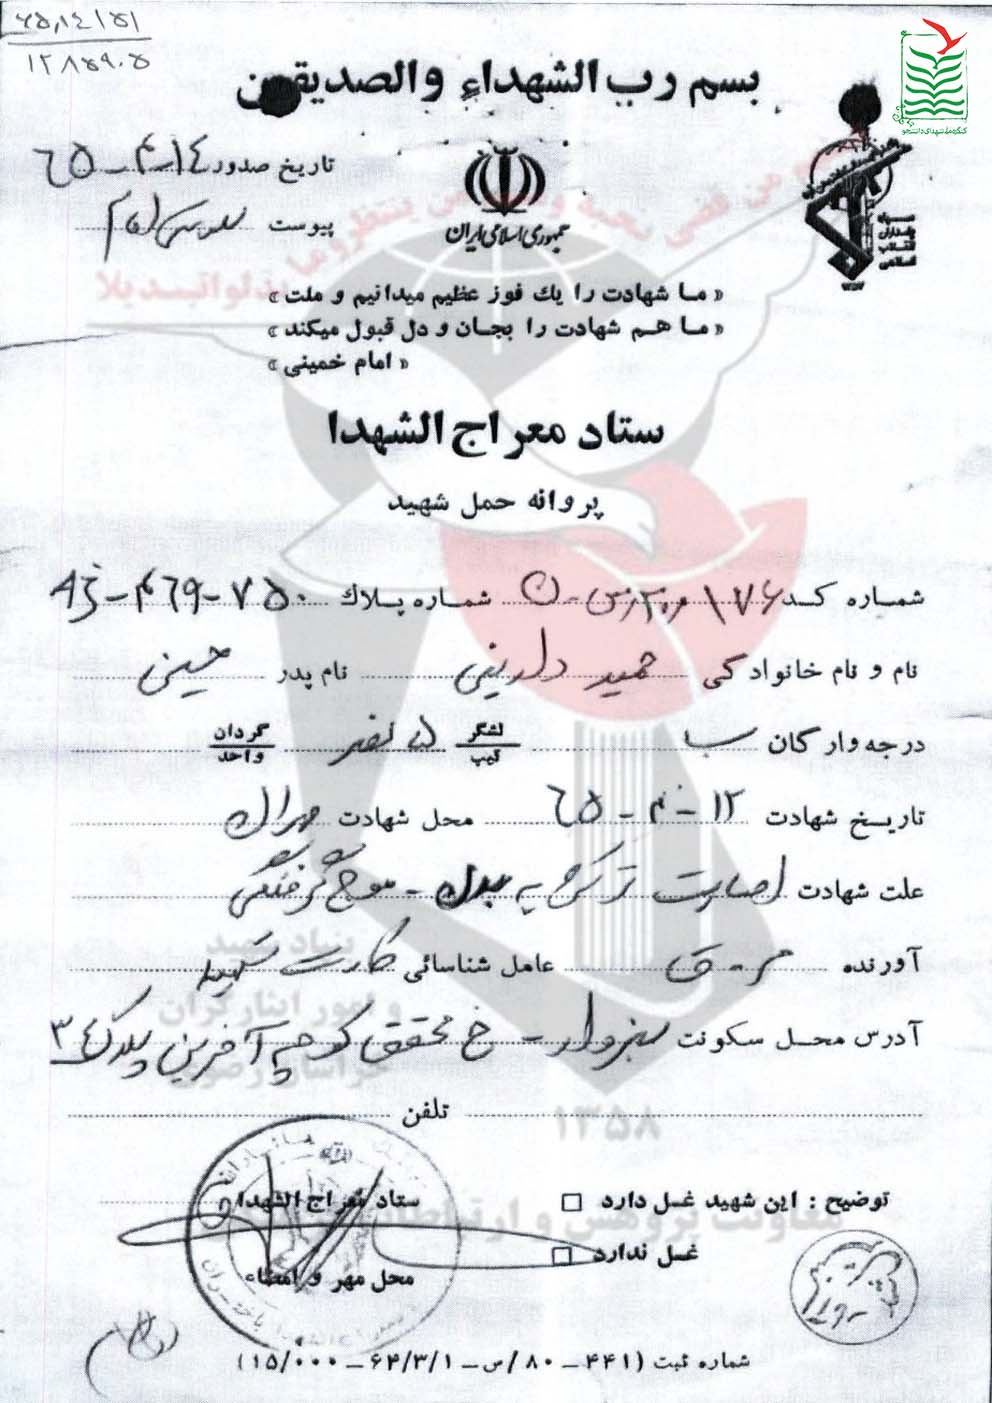 ۶۵,۱۴۱۵۱
۱۲۸۵۹۰۵
کنگره ملی شهدای دانشجو
بسم رب الشهداء والصدیقین
تاریخ صدور ۱٤-۴-٦٥
پیوست
جمهوری اسلامی ایران
سپاه پاسداران انقلاب اسلامی
« ما شهادت را یك فوز عظیم میدانیم و ملت »
« ما هم شهادت را بجان و دل قبول میکند »
« امام خمینی »
ستاد معراج الشهدا
پروانه حمل شهید
شماره کد ۱۷۶ شماره پلاك ۷۵۰-۴٦۹-
نام و نام خانوادگی حمید دلبرینی نام پدر حسین
درجه وارگان ب لشگر تیپ ۵ نصر گردان واحد
تاریخ شهادت ۱۲-۴-٦٥ محل شهادت مهران
علت شهادت اصابت ترکش به بدن - موج گرفتگی
آورنده عامل شناسائی کارت شهید
آدرس محل سکونت سبزوار - خ محقق کوچه آفرین پلاک ۳٤
تلفن
بنیاد شهید
و امور ایثارگران
خراسان رضوی
۱۳۵۸
معاونت پژوهش و ارتباطات
توضیح : این شهید غسل دارد □ ستاد معراج الشهدا
غسل ندارد □
محل مهر و امضاء
شماره ثبت (۴۴۱ – ۸۰/س – ۶۴/۳/۱ – ۱۵/۰۰۰)